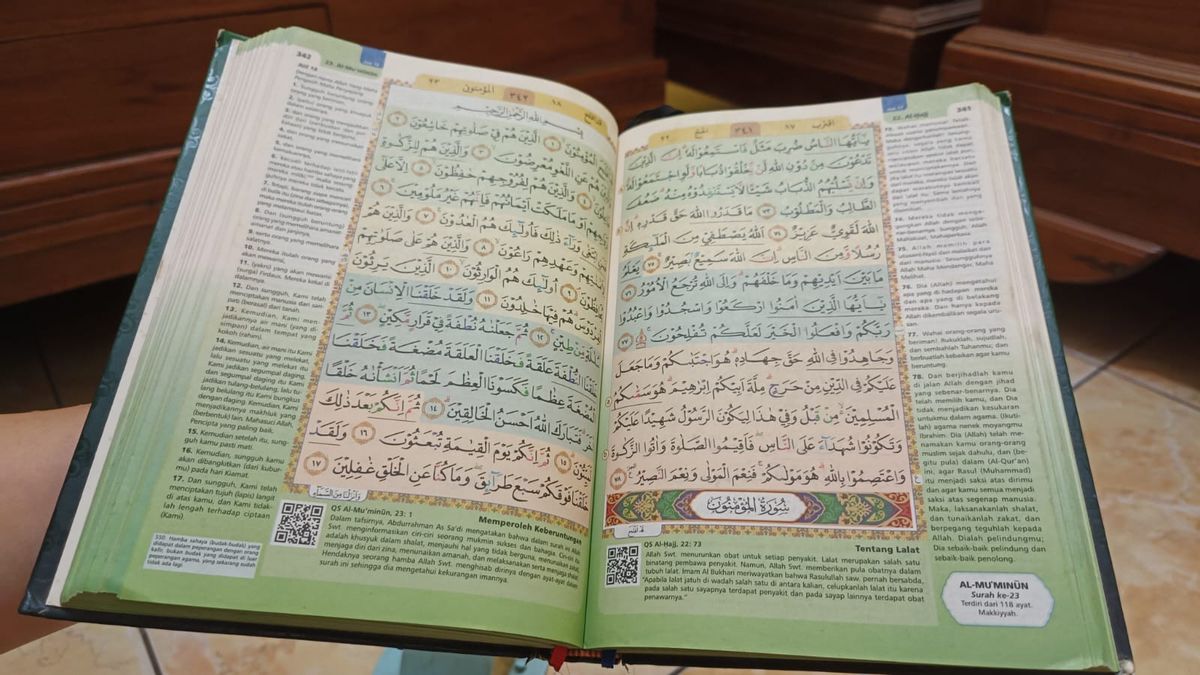 341
22. Al-Hajj
اقترب ١٧
٣٤١
الحج ٢٢
يٰٓاَيُّهَا النَّاسُ ضُرِبَ مَثَلٌ فَاسْتَمِعُوْا لَهٗۗ اِنَّ الَّذِيْنَ
تَدْعُوْنَ مِنْ دُوْنِ اللّٰهِ لَنْ يَّخْلُقُوْا ذُبَابًا وَّلَوِ اجْتَمَعُوْا لَهٗۗ
وَاِنْ يَّسْلُبْهُمُ الذُّبَابُ شَيْـًٔا لَّا يَسْتَنْقِذُوْهُ مِنْهُۗ ضَعُفَ
الطَّالِبُ وَالْمَطْلُوْبُ ٧٣ مَا قَدَرُوا اللّٰهَ حَقَّ قَدْرِهٖۗ اِنَّ
اللّٰهَ لَقَوِيٌّ عَزِيْزٌ ٧٤ اَللّٰهُ يَصْطَفِيْ مِنَ الْمَلٰۤىِٕكَةِ
رُسُلًا وَّمِنَ النَّاسِۗ اِنَّ اللّٰهَ سَمِيْعٌۢ بَصِيْرٌ ٧٥ يَعْلَمُ
مَا بَيْنَ اَيْدِيْهِمْ وَمَا خَلْفَهُمْۗ وَاِلَى اللّٰهِ تُرْجَعُ الْاُمُوْرُ ٧٦
يٰٓاَيُّهَا الَّذِيْنَ اٰمَنُوا ارْكَعُوْا وَاسْجُدُوْا وَاعْبُدُوْا
رَبَّكُمْ وَافْعَلُوا الْخَيْرَ لَعَلَّكُمْ تُفْلِحُوْنَ ٧٧
وَجَاهِدُوْا فِى اللّٰهِ حَقَّ جِهَادِهٖۗ هُوَ اجْتَبٰىكُمْ وَمَا جَعَلَ
عَلَيْكُمْ فِى الدِّيْنِ مِنْ حَرَجٍۗ مِلَّةَ اَبِيْكُمْ اِبْرٰهِيْمَۗ هُوَ سَمّٰىكُمُ
الْمُسْلِمِيْنَ مِنْ قَبْلُ وَفِيْ هٰذَا لِيَكُوْنَ الرَّسُوْلُ شَهِيْدًا عَلَيْكُمْ
وَتَكُوْنُوْا شُهَدَاۤءَ عَلَى النَّاسِۖ فَاَقِيْمُوا الصَّلٰوةَ وَاٰتُوا الزَّكٰوةَ
وَاعْتَصِمُوْا بِاللّٰهِۗ هُوَ مَوْلٰىكُمْۚ فَنِعْمَ الْمَوْلٰى وَنِعْمَ النَّصِيْرُ ٧٨
سُوْرَةُ الْمُؤْمِنُوْنَ
74. Mereka tidak menga-
gungkan Allah dengan sebe-
nar-benarnya. Sungguh, Allah
Mahakuat, Mahaperkasa.
75. Allah memilih para
utusan(-Nya) dari malaikat dan
dari manusia. Sesungguhnya
Allah Maha Mendengar, Maha
Melihat.
76. Dia (Allah) mengetahui
apa yang di hadapan mereka
dan apa yang di belakang
mereka. Dan hanya kepada
Allah dikembalikan segala uru-
san.
77. Wahai orang-orang yang
beriman! Rukuklah, sujudlah,
dan sembahlah Tuhanmu; dan
berbuatlah kebaikan agar kamu
beruntung.
78. Dan berjihadlah kamu
di jalan Allah dengan jihad
yang sebenar-benarnya. Dia
telah memilih kamu, dan Dia
tidak menjadikan kesukaran
untukmu dalam agama. (Ikuti-
lah) agama nenek moyangmu
Ibrahim. Dia (Allah) telah me-
namakan kamu orang-orang
muslim sejak dahulu, dan (be-
gitu pula) dalam (Al-Qur'an)
ini, agar Rasul (Muhammad)
itu menjadi saksi atas dirimu
dan agar kamu semua menjadi
saksi atas segenap manusia.
Maka, laksanakanlah shalat,
dan tunaikanlah zakat, dan
berpegang teguhlah kepada
Allah. Dialah Pelindungmu;
Dia sebaik-baik pelindung dan
sebaik-baik penolong.
QS Al-Hajj, 22: 73
Tentang Lalat
Allah Swt. menurunkan obat untuk setiap penyakit. Lalat merupakan salah satu
binatang pembawa penyakit. Namun, Allah Swt. memberikan pula obatnya dalam
tubuh lalat. Imam Al Bukhari meriwayatkan bahwa Rasulullah saw. pernah bersabda,
"Apabila lalat jatuh di wadah salah satu di antara kalian, celupkanlah lalat itu karena
pada salah satu sayapnya terdapat penyakit dan pada sayap lainnya terdapat obat
penawarnya."
AL-MU'MINŪN
Surah ke-23
Terdiri dari 118 ayat.
Makkiyyah.
342
23. Al-Mu'minūn
١٨
٣٤٢
المؤمنون ٢٣
بِسْمِ اللّٰهِ الرَّحْمٰنِ الرَّحِيْمِ
الْمُؤْمِنُوْنَ ١ الَّذِيْنَ هُمْ فِيْ صَلَاتِهِمْ خٰشِعُوْنَ ٢
هُمْ عَنِ اللَّغْوِ مُعْرِضُوْنَ ٣ وَالَّذِيْنَ هُمْ لِلزَّكٰوةِ
٤ وَالَّذِيْنَ هُمْ لِفُرُوْجِهِمْ حٰفِظُوْنَ ٥ اِلَّا عَلٰٓى
اَوْ مَا مَلَكَتْ اَيْمَانُهُمْ فَاِنَّهُمْ غَيْرُ مَلُوْمِيْنَ ٦
وَرَاۤءَ ذٰلِكَ فَاُولٰۤىِٕكَ هُمُ الْعٰدُوْنَ ٧ وَالَّذِيْنَ هُمْ
وَعَهْدِهِمْ رَاعُوْنَ ٨ وَالَّذِيْنَ هُمْ عَلٰى صَلَوٰتِهِمْ
٩ اُولٰۤىِٕكَ هُمُ الْوٰرِثُوْنَ ١٠ الَّذِيْنَ يَرِثُوْنَ
هُمْ فِيْهَا خٰلِدُوْنَ ١١ وَلَقَدْ خَلَقْنَا الْاِنْسَانَ مِنْ
سُلٰلَةٍ مِّنْ طِيْنٍ ١٢ ثُمَّ جَعَلْنٰهُ نُطْفَةً فِيْ قَرَارٍ مَّكِيْنٍ ١٣ ثُمَّ
خَلَقْنَا النُّطْفَةَ عَلَقَةً فَخَلَقْنَا الْعَلَقَةَ مُضْغَةً فَخَلَقْنَا
الْمُضْغَةَ عِظٰمًا فَكَسَوْنَا الْعِظٰمَ لَحْمًا ثُمَّ اَنْشَأْنٰهُ خَلْقًا
فَتَبٰرَكَ اللّٰهُ اَحْسَنُ الْخٰلِقِيْنَ ١٤ ثُمَّ اِنَّكُمْ بَعْدَ ذٰلِكَ
١٥ ثُمَّ اِنَّكُمْ يَوْمَ الْقِيٰمَةِ تُبْعَثُوْنَ ١٦ وَلَقَدْ
فَوْقَكُمْ سَبْعَ طَرَاۤىِٕقَ وَمَا كُنَّا عَنِ الْخَلْقِ غٰفِلِيْنَ ١٧
وَاَنْزَلْنَا مِنَ السَّمَاۤءِ
10. Mereka itulah orang yang
akan mewarisi,
11. (yakni) yang akan mewarisi
(surga) Firdaus. Mereka kekal di
dalamnya.
12. Dan sungguh, Kami telah
menciptakan manusia dari sari-
pati (berasal) dari tanah.
13. Kemudian, Kami men-
jadikannya air mani (yang di-
simpan) dalam tempat yang
kokoh (rahim).
14. Kemudian, air mani itu Kami
jadikan sesuatu yang melekat,
lalu sesuatu yang melekat itu
Kami jadikan segumpal daging,
dan segumpal daging itu Kami
jadikan tulang-belulang, lalu tu-
lang-belulang itu Kami bungkus
dengan daging. Kemudian, Kami
menjadikannya makhluk yang
(berbentuk) lain. Mahasuci Allah,
Pencipta yang paling baik.
15. Kemudian setelah itu, sung-
guh kamu pasti mati.
16. Kemudian, sungguh kamu
akan dibangkitkan (dari kubur-
mu) pada hari Kiamat.
17. Dan sungguh, Kami telah
menciptakan tujuh (lapis) langit
di atas kamu, dan Kami tidak-
lah lengah terhadap ciptaan
(Kami).
530. Hamba sahaya (budak-budak) yang
didapat dalam peperangan dengan orang
kafir, bukan budak yang didapat di luar
peperangan agama, yang sekarang sudah
tidak ada lagi.
QS Al-Mu'minūn, 23: 1
Memperoleh Keberuntungan
Dalam tafsirnya, Abdurrahman As Sa'di mengatakan bahwa dalam surah ini Allah
Swt. menginformasikan ciri-ciri seorang mukmin sukses dan bahagia. Ciri-ciri itu
adalah khusyuk dalam shalat, menjauhi hal yang tidak berguna, menunaikan zakat,
menjaga diri dari zina, menunaikan amanah, dan melaksanakan serta menjaga shalat.
Hendaknya seorang hamba Allah Swt. menghisab dirinya dengan ayat-ayat dalam
surah ini sehingga dia mengetahui kekurangan imannya.